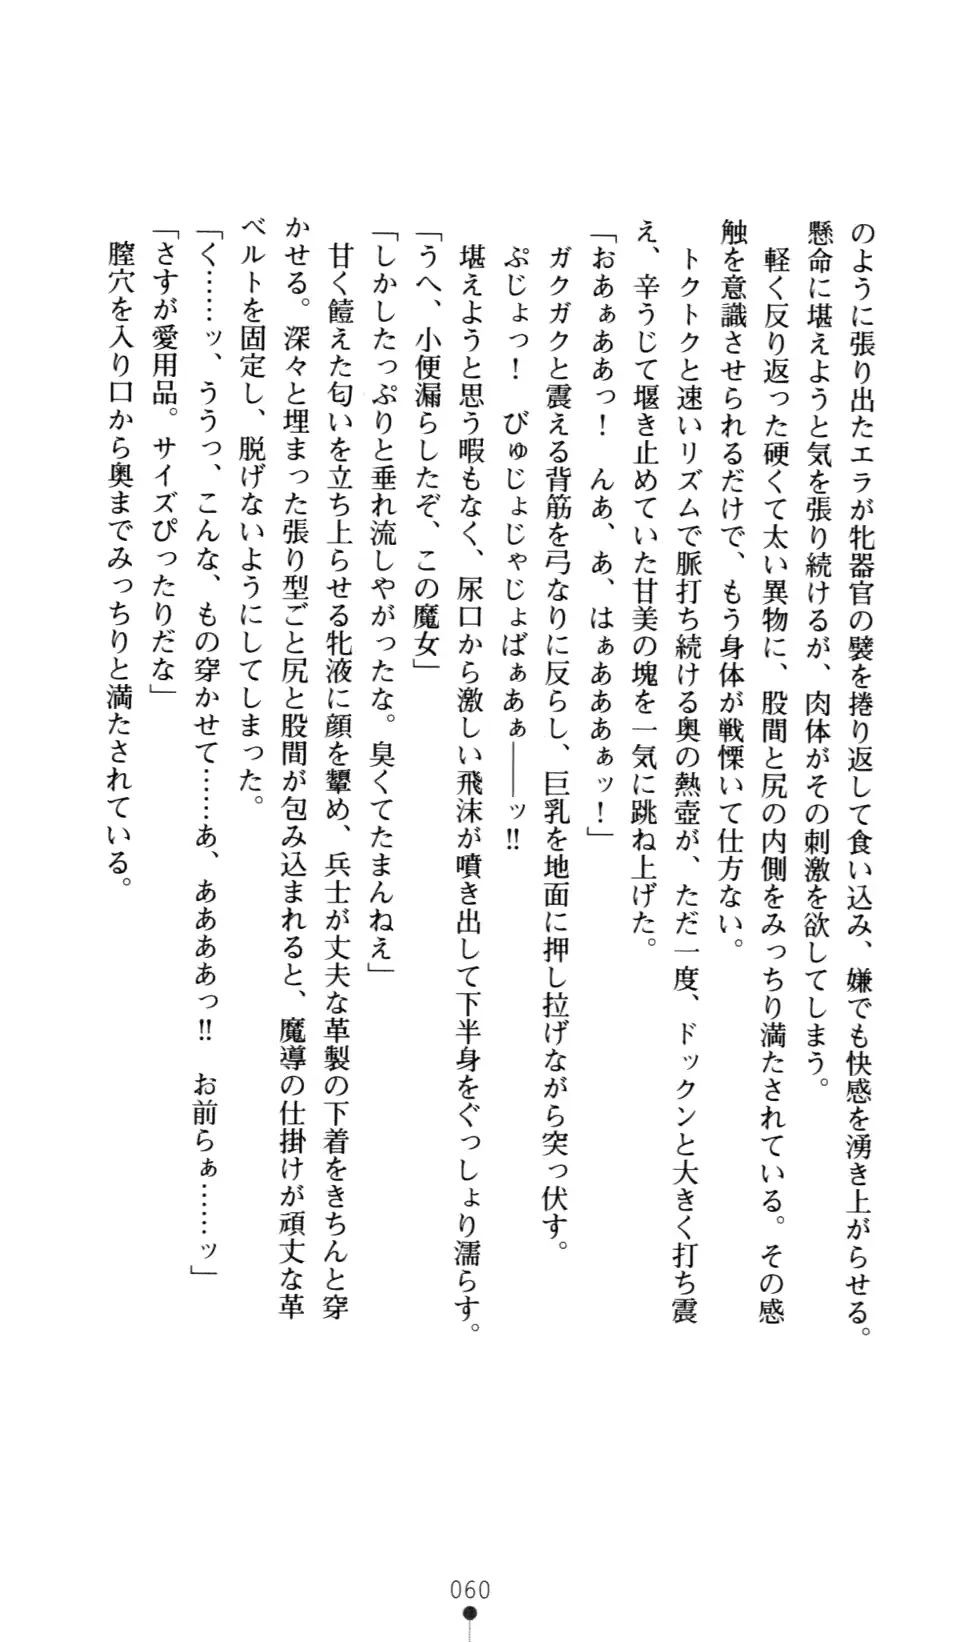 のように張り出たエラが牝器官の襞を捲り返して食い込み、嫌でも快感を湧き上がらせる。
懸命に堪えようと気を張り続けるが、肉体がその刺激を欲してしまう。
軽く反り返った硬くて太い異物に、股間と尻の内側をみっちり満たされている。その感
触を意識させられるだけで、もう身体が戦慄いて仕方ない。
トクトクと速いリズムで脈打ち続ける奥の熱壺が、ただ一度、ドックンと大きく打ち震
え、辛うじて堰き止めていた甘美の塊を一気に跳ね上げた。
「おあぁああっ！　んあ、あ、はぁあああぁッ！」
ガクガクと震える背筋を弓なりに反らし、巨乳を地面に押し拉げながら突っ伏す。
ぷじょっ！　びゅじょじゃじょばぁあぁ――ッ!!
堪えようと思う暇もなく、尿口から激しい飛沫が噴き出して下半身をぐっしょり濡らす。
「うへ、小便漏らしたぞ、この魔女」
「しかしたっぷりと垂れ流しやがったな。臭くてたまんねえ」
甘く饐えた匂いを立ち上らせる牝液に顔を顰め、兵士が丈夫な革製の下着をきちんと穿
かせる。深々と埋まった張り型ごと尻と股間が包み込まれると、魔導の仕掛けが頑丈な革
ベルトを固定し、脱げないようにしてしまった。
「く……ッ、ううっ、こんな、もの穿かせて……あ、ああああっ!!　お前らぁ……ッ」
「さすが愛用品。サイズぴったりだな」
膣穴を入り口から奥までみっちりと満たされている。
060